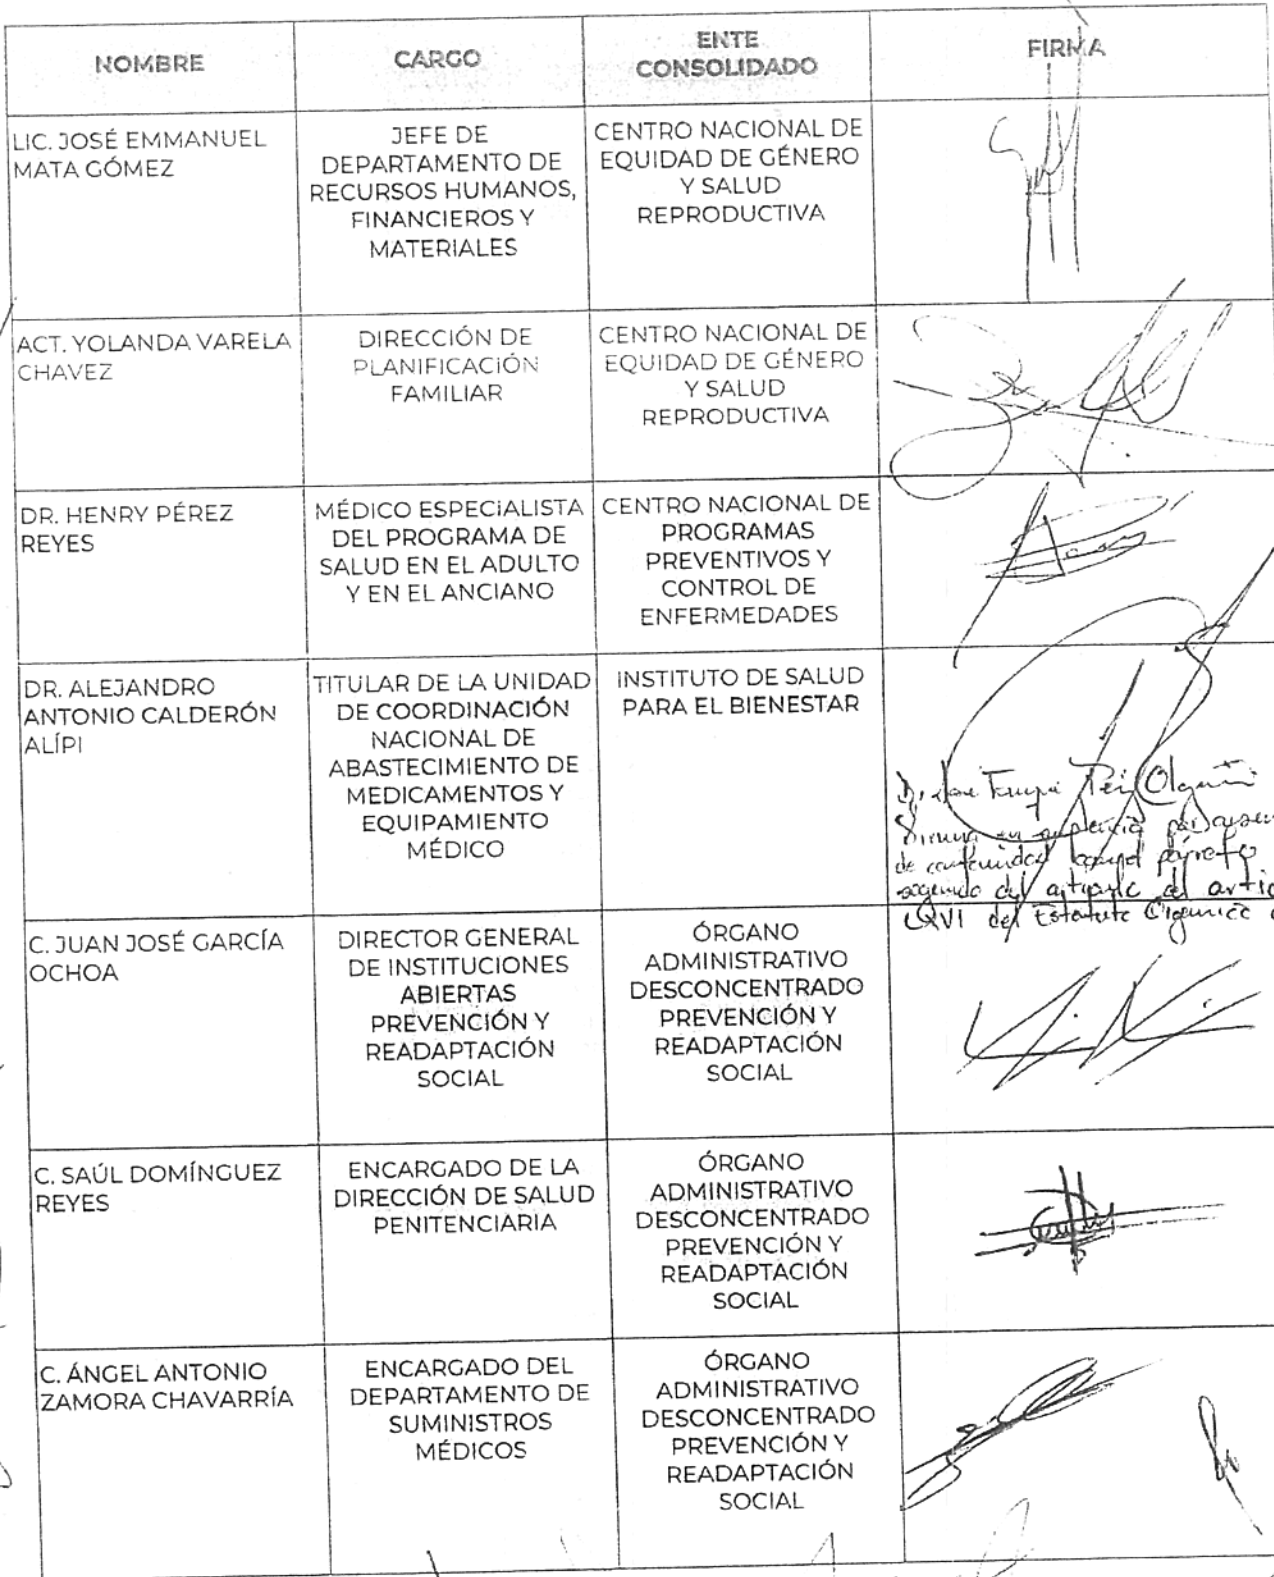 NOMBRE
CARGO
ENTE
CONSOLIDADO
FIRMA
LIC. JOSÉ EMMANUEL
MATA GÓMEZ
JEFE DE
DEPARTAMENTO DE
RECURSOS HUMANOS,
FINANCIEROS Y
MATERIALES
CENTRO NACIONAL DE
EQUIDAD DE GÉNERO
Y SALUD
REPRODUCTIVA
ACT. YOLANDA VARELA
CHAVEZ
DIRECCIÓN DE
PLANIFICACIÓN
FAMILIAR
CENTRO NACIONAL DE
EQUIDAD DE GÉNERO
Y SALUD
REPRODUCTIVA
DR. HENRY PÉREZ
REYES
MÉDICO ESPECIALISTA
DEL PROGRAMA DE
SALUD EN EL ADULTO
Y EN EL ANCIANO
CENTRO NACIONAL DE
PROGRAMAS
PREVENTIVOS Y
CONTROL DE
ENFERMEDADES
DR. ALEJANDRO
ANTONIO CALDERÓN
ALÍPI
TITULAR DE LA UNIDAD
DE COORDINACIÓN
NACIONAL DE
ABASTECIMIENTO DE
MEDICAMENTOS Y
EQUIPAMIENTO
MÉDICO
INSTITUTO DE SALUD
PARA EL BIENESTAR
de
del
del Estatuto
C. JUAN JOSÉ GARCÍA
OCHOA
DIRECTOR GENERAL
DE INSTITUCIONES
ABIERTAS
PREVENCIÓN Y
READAPTACIÓN
SOCIAL
ÓRGANO
ADMINISTRATIVO
DESCONCENTRADO
PREVENCIÓN Y
READAPTACIÓN
SOCIAL
C. SAÚL DOMÍNGUEZ
REYES
ENCARGADO DE LA
DIRECCIÓN DE SALUD
PENITENCIARIA
ÓRGANO
ADMINISTRATIVO
DESCONCENTRADO
PREVENCIÓN Y
READAPTACIÓN
SOCIAL
C. ÁNGEL ANTONIO
ZAMORA CHAVARRÍA
ENCARGADO DEL
DEPARTAMENTO DE
SUMINISTROS
MÉDICOS
ÓRGANO
ADMINISTRATIVO
DESCONCENTRADO
PREVENCIÓN Y
READAPTACIÓN
SOCIAL